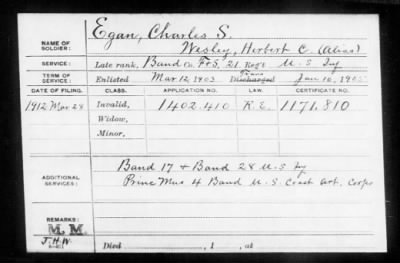 Egan, Charles S.
NAME OF SOLDIER: Wesley, Herbert C. (Alias)
SERVICE: Late rank, Band Co. F+S, 21 Reg't U.S. Inf
TERM OF SERVICE: Enlisted Mar. 12, 1903 Trans Discharged Jan. 10, 1905
DATE OF FILING. CLASS. APPLICATION NO. LAW. CERTIFICATE NO.
1912 Mar 28 Invalid, 1402.410 R.E. 1171,810
Widow,
Minor,
ADDITIONAL SERVICES: Band 17 + Band 28 U.S. Inf
Princ Mus 4 Band U.S. Coast Art. Corps
REMARKS:
M.M.
J.H.W.
Died , 1 , at